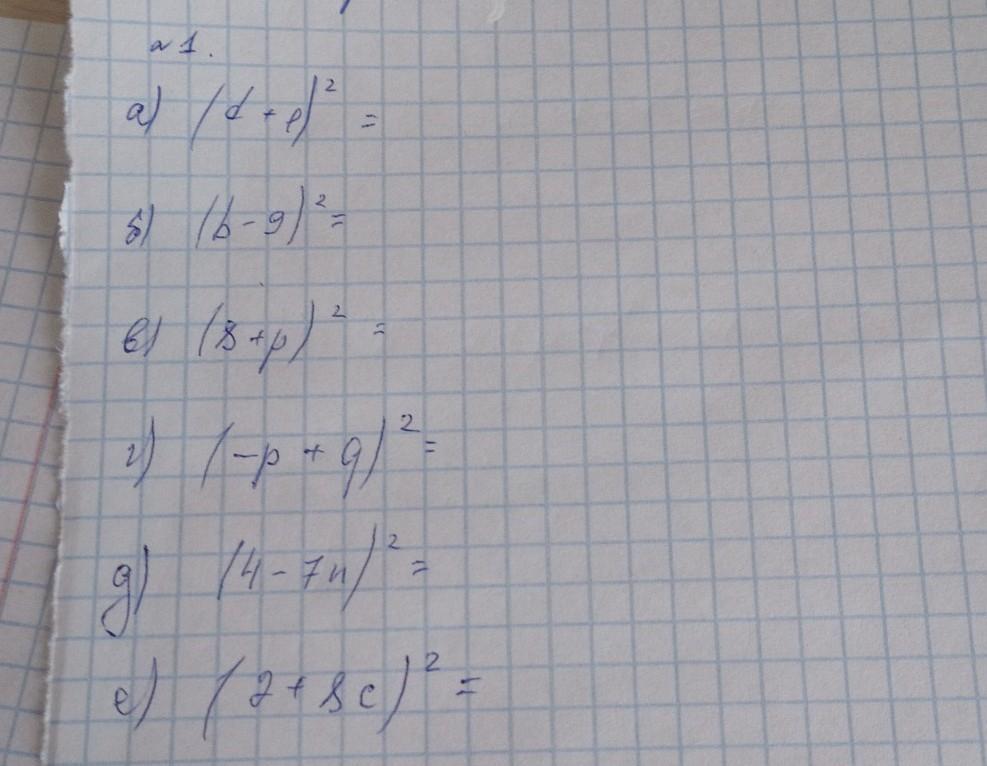 №1.
а) (d + e)² =
б) (b - 9)² =
в) (8 + p)² =
г) (-p + q)² =
д) (4 - 7n)² =
е) (2 + 8c)² =